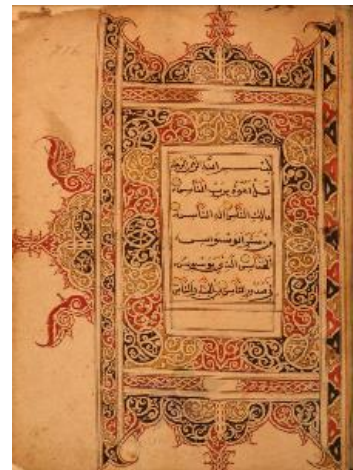 بسم الله الرحمن الرحيم
قل اعوذ برب الناس
ملك الناس اله الناس
من شر الوسواس
الخناس الذي يوسوس
في صدور الناس من الجنة والناس